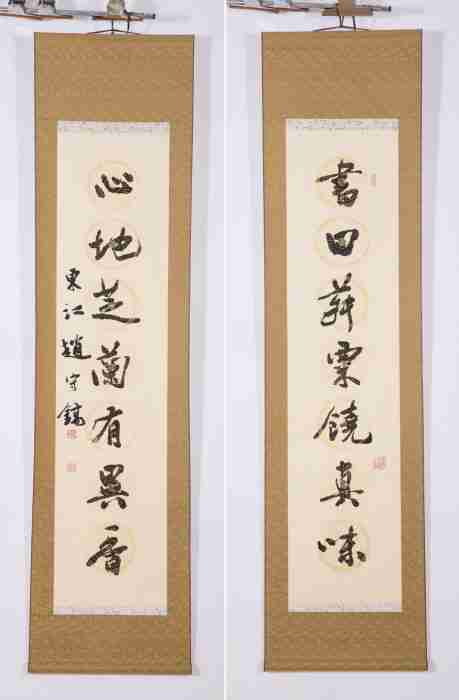 書田菽粟饒真味
心地芝蘭有異香
東江趙守鎬